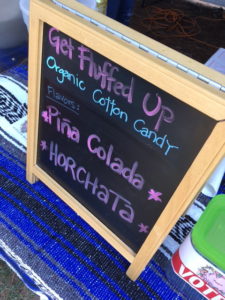 Get Fluffed Up
Organic Cotton Candy
Flavors:
*Piña Colada*
*HORCHATA*